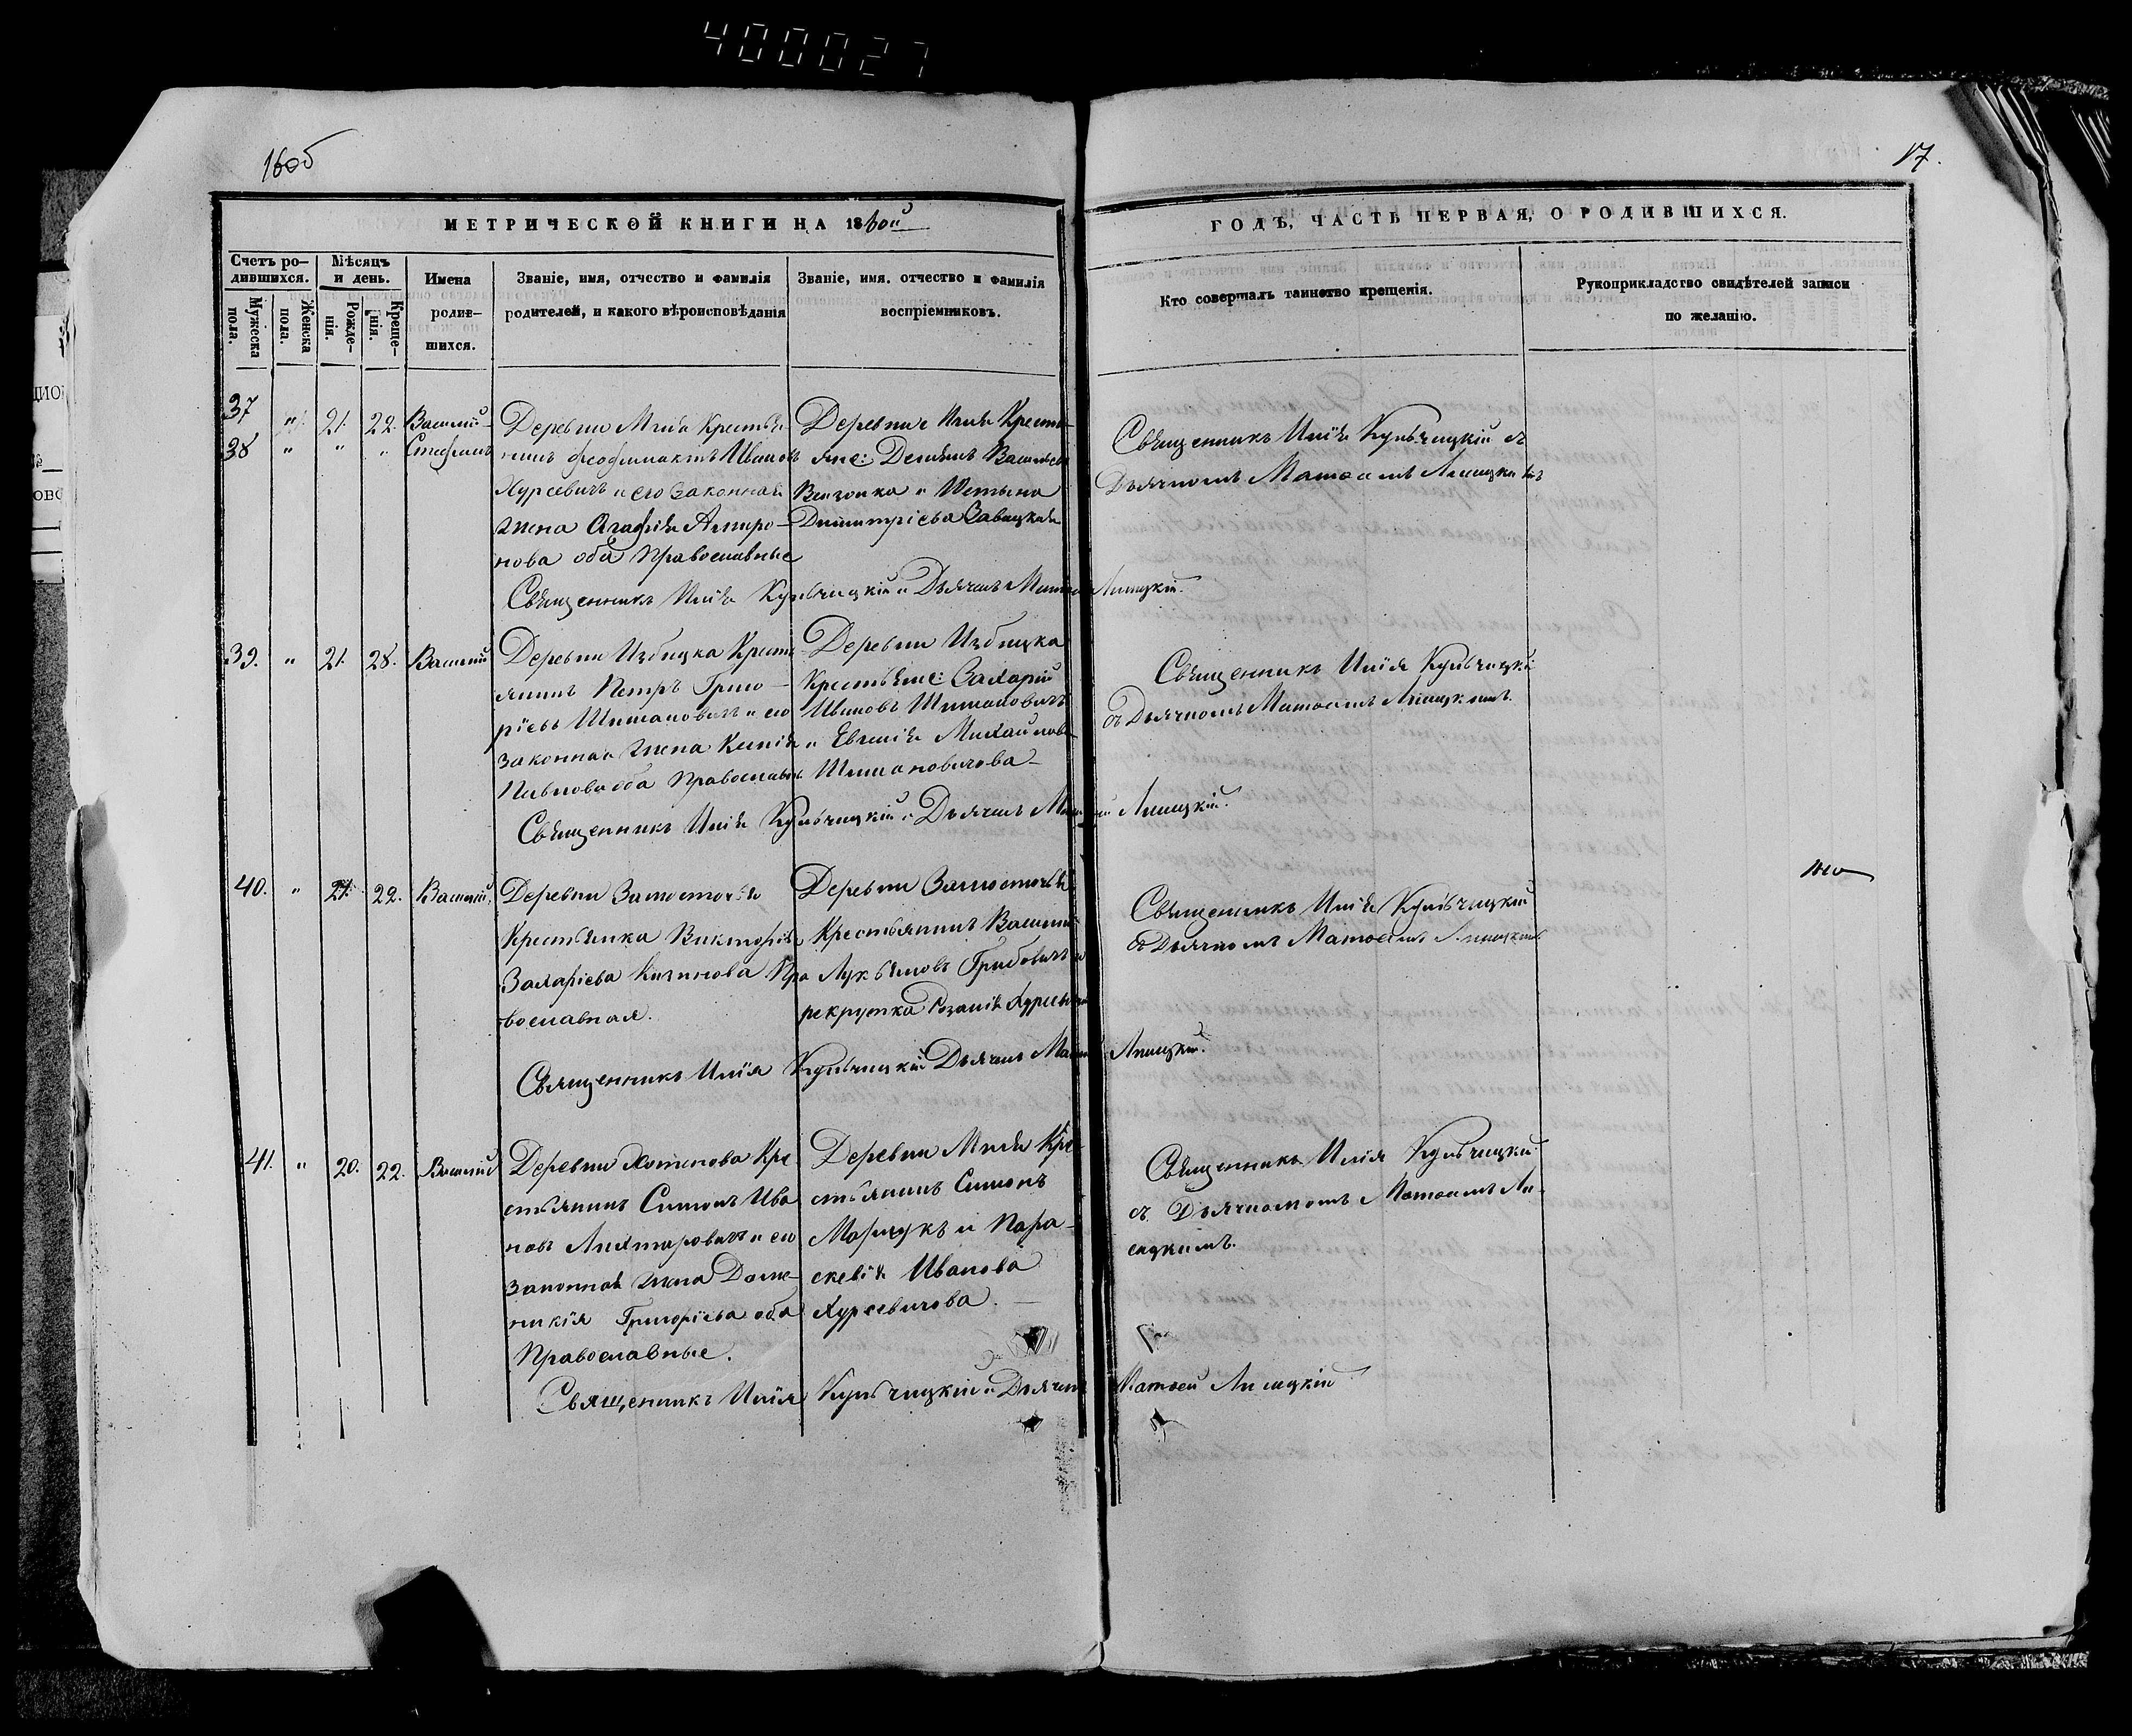 400027
16об
17.
МЕТРИЧЕСКОЙ КНИГИ НА 1860й
ГОДЪ, ЧАСТЬ ПЕРВАЯ, О РОДИВШИХСЯ.
Счетъ ро-
дившихся.
Мужска
пола.
Женска
пола.
Мѣсяцъ
и день.
Рожде-
нія.
Креще-
нія.
Имена
родив-
шихся.
Званіе, имя, отчество и фамилія
родителей, и какого вѣроисповѣданія
Званіе, имя. отчество и фамилія
воспріемниковъ.
Кто совершалъ таинство крещенія.
Рукоприкладство свидѣтелей записи
по желанію.
37 " 21. 22. Василій
38 " " " Стефанъ
Деревни Мжа Крестья-
нинъ Феофилактъ Ивановъ
Хурсевичъ и его законная
жена Агафія Андро-
нова оба Православные
Деревни Крестья-
яне: Демьянъ Васильевъ
и
Димитріева Савицкая
Священникъ Илія Кульчицкій съ
Дьячкомъ Матѳеемъ Лисицкимъ
Священникъ Илія Кульчицкій и Дьячекъ Матѳей Лисицкій.
39. " 21. 28. Василій
Деревни Избицка Кресть
янинъ Петръ Григо-
рьевъ Шимановичъ и его
законная жена Ксенія
Павлова оба Православные
Деревни Избицка
Крестьяне: Захарій
Ивановъ Шимановичъ
и Евгенія Михайлова
Шимановичова
Священникъ Илія Кульчицкій
съ Дьячкомъ Матѳеемъ Лисицкимъ.
Священникъ Илія Кульчицкій и Дьячекъ Матѳей Лисицкій.
40. " 21. 22. Василій.
Деревни Замосточья
Крестьянка Викторія
Захаріева Пра
вославная.
Деревни Замосточья
Крестьянинъ Василій
Лукьяновъ Грибовичъ и
рекрутка Розалія
Священникъ Илія Кульчицкій
съ Дьячкомъ Матѳеемъ Лисицкимъ
Священникъ Илія Кульчицкій Дьячекъ Матѳей Лисицкій.
41. " 20. 22. Василій
Деревни Хотенова Кре
стьянинъ Симонъ Ива
новъ Лихтаровичъ и его
законная жена Доми-
никія Григоріева оба
Православные.
Деревни Мжа Кре
стьянинъ Симонъ
и Пара-
скевія Иванова
Хурсевичова.
Священникъ Илія Кульчицкій
съ Дьячкомъ Матѳеемъ Ли-
сицкимъ.
Священникъ Илія Кульчицкій и Дьячекъ Матѳей Лисицкій